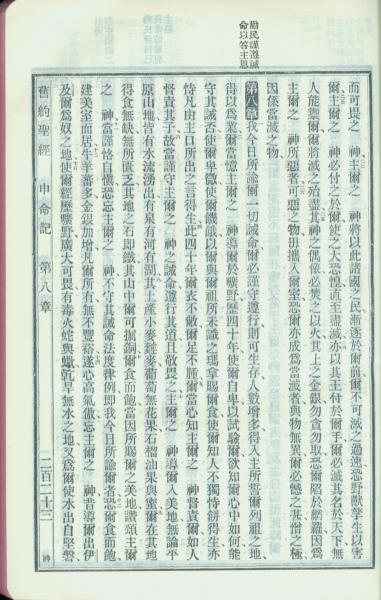 勸民謹遵誡
命以答主恩
而可畏之　神主爾之　神將以此諸國之民漸逐於爾前爾不可滅之過速恐野獸孳生以害
爾主爾之　神必付之於爾使之大恐惶直至盡滅亦以其王付於爾手爾必滅其名於天下無
人能禦爾爾將滅之殆盡其神之偶像必焚之以火其上之金銀勿貪勿取恐爾陷於網羅因爲
主爾之　神所惡者可惡之物毋攜入爾室恐爾亦成爲當滅者與物無異爾必憾之甚憎之極
因係當滅之物
第八章我今日所諭爾一切誡命爾必謹守遵行則可生存人數增多得入主所誓爾列祖之地
得以爲業爾當憶主爾之　神導爾於曠野歷四十年使爾自卑以試驗爾欲知爾心中如何能
守其誡否使爾卑微使爾饑餓以爾與爾祖所未識之瑪拿賜爾食使爾知人不獨恃餅得生亦
恃凡由主口所出之言得生此四十年爾衣不敝爾足不腫爾當心知主爾之　神督責爾如人
督責其子故當謹守主爾之　神之誡命遵行其道且敬畏之主爾之　神導爾入美地無論平
原山地皆有水流湧出有泉有河有澗其土產小麥麰麥葡萄無花果石榴油果與蜜爾在其地
得食無缺無所匱乏其地之石即鐵其山中爾可掘銅爾食而飽當因所賜爾之美地讚頌主爾
之　神當謹恪自慎恐忘主爾之　神不守其誡命法度律例即我今日所諭爾者恐爾食而飽
建美室而居牛羊蕃多金銀加增凡爾所有無不豐裕遂心高氣傲忘主爾之　神昔導爾出伊
及爾爲奴之地使爾經歷曠野廣大可畏有毒火蛇與蠍乾旱無水之地又爲爾使水出自堅磐
舊約聖經　申命記　第八章　二百二十三